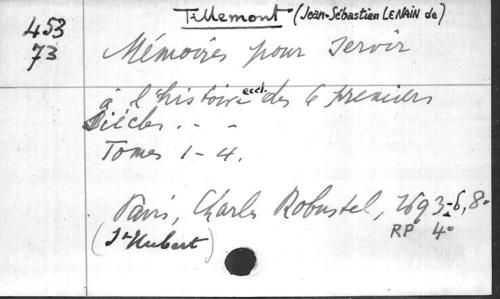 Tillemont (Jean-Sébastien LENAIN de)
453
73
Mémoires pour servir
à l'histoire eccl. des 6 premiers
Siècles . . .
Tomes 1-4.
Paris, Charles Robustel, 1693-6, 8°
RP 4°
(St Hubert)